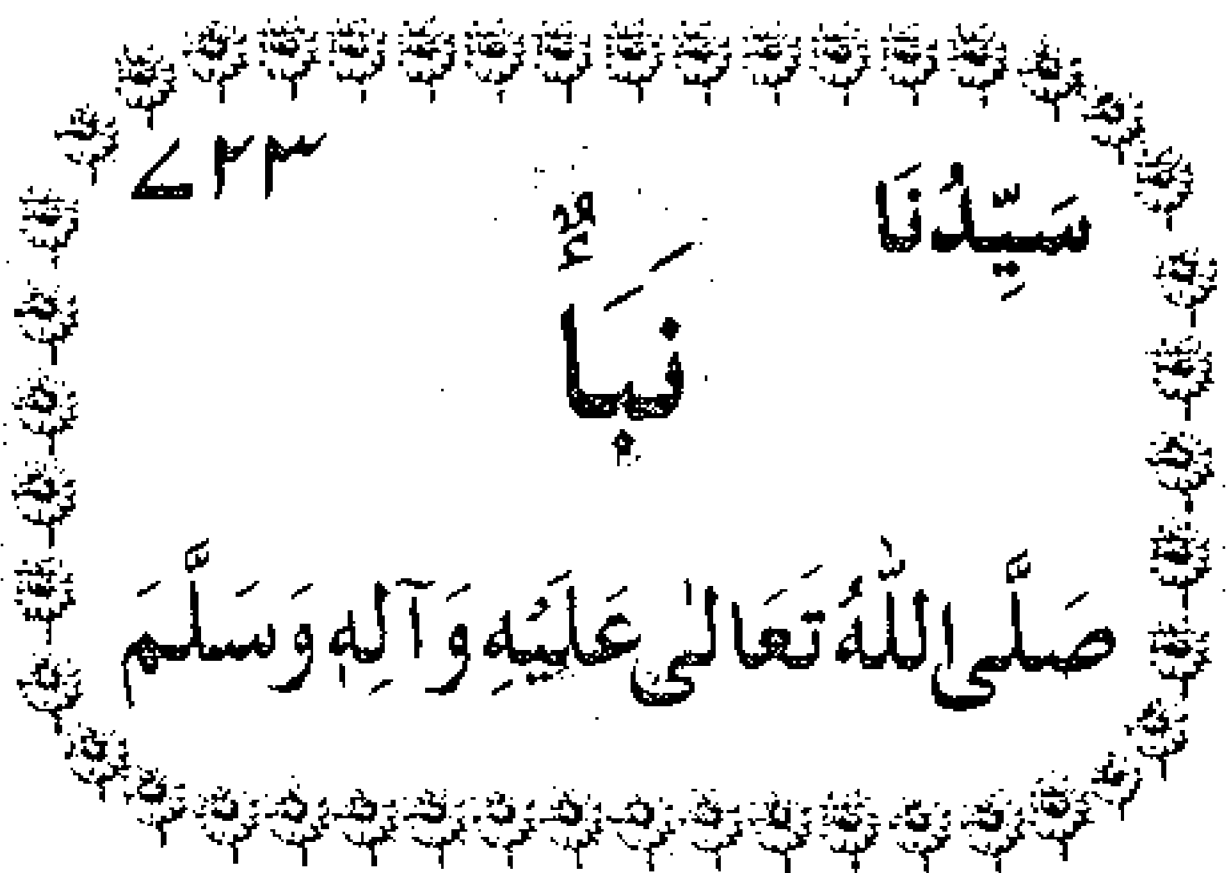 سَيِّدُنَا ۷۲۳
نَبَأٌ
صَلَّى اللّٰهُ تَعَالٰى عَلَيْهِ وَآلِهٖ وَسَلَّمَ